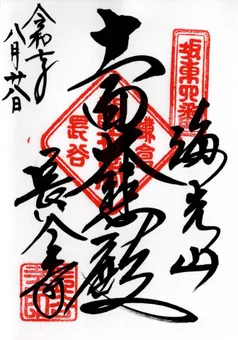 坂東四番
海光山
十一面大悲殿
鎌倉
長谷
長谷寺
令和元年
八月廿八日